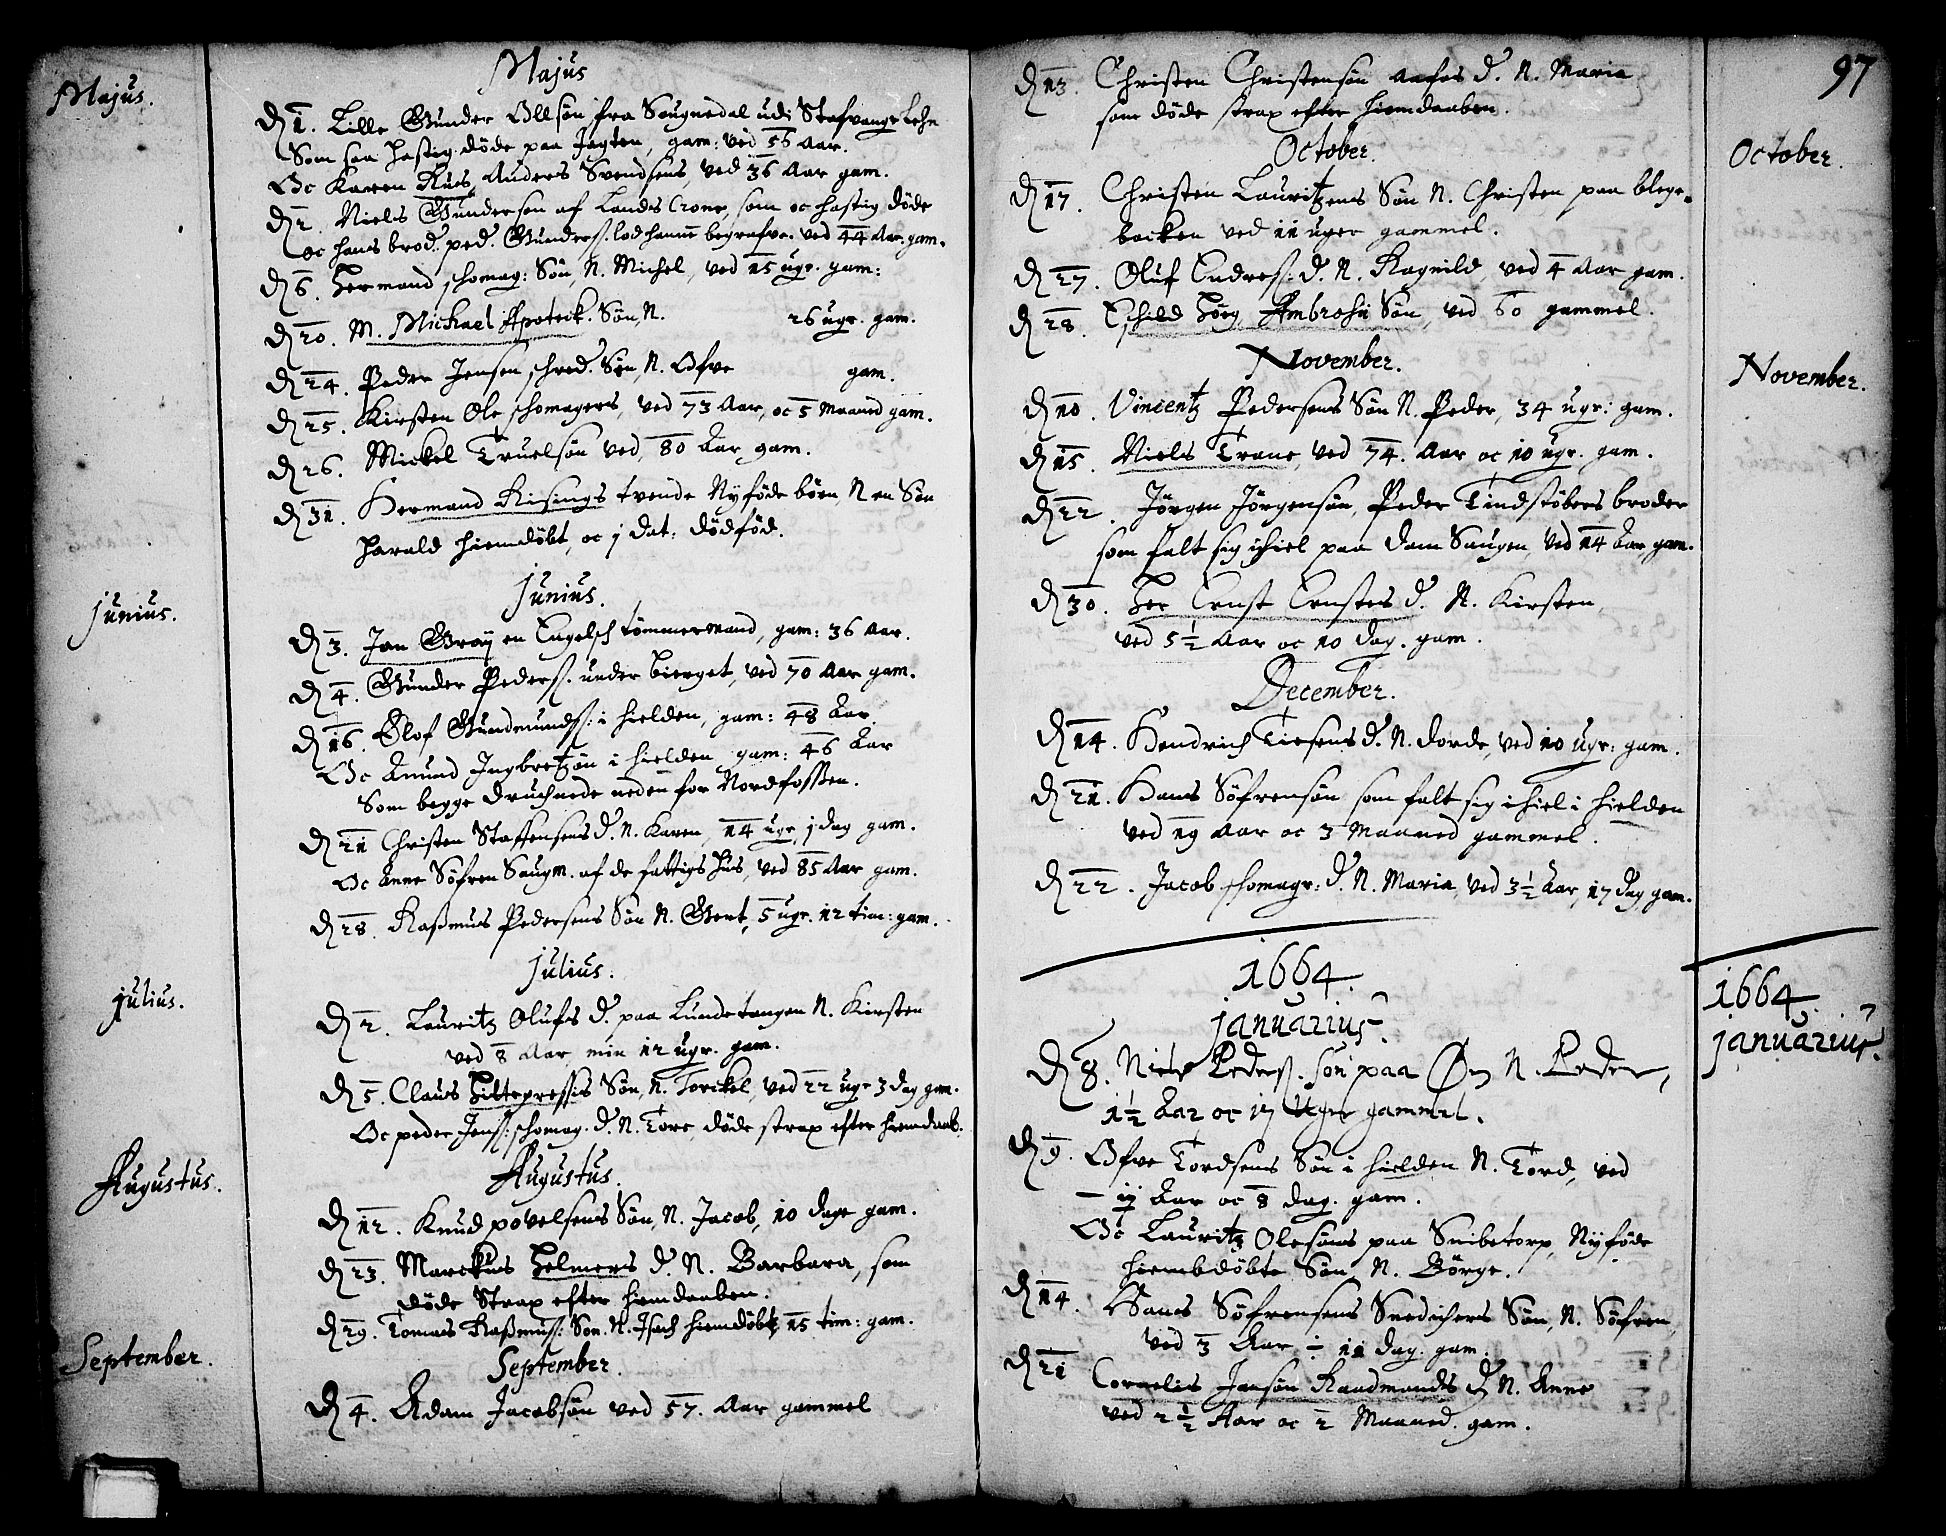 Majus.
Majus
D 1. Lille Gunder Ollsøn fra Sougnedal udi Stafvanger Lehn
Som saa hastig døde paa Jagten, gam: ved 56 Aar.
Oc Karen Anders Svendsens, ved 36 Aar gam.
D 2. Niels Gundersen af Lands Crone, som oc hastig døde
oc hans brod. ped. Gunders. lod hannē begrafve. ved 44 Aar. gam.
D 6. Hermand schomag: Søn, N. Michel, ved 15 ugr. gam:
D 20. M. Michael Apoteck. Søn, N. 26 ugr. gam.
D 24. Peder Jensen schred. Søn, N. Ofve gam.
D 25. Kirsten Ole schomagers, ved 73 Aar, oc 5 Maaned gam.
D 26. Mickel Truelsøn ved, 80 Aar, gam.
D 31. Hermand Risings tvende Nyføde børn, N en Søn
Harald hiemdøbt, oc j dat: dødfød.
Junius.
Junius.
D 3. Jan Graÿ en Engelsch tømmermand, gam: 36 Aar.
D 4. Gunder Peders. under bierget, ved 70 Aar gam.
D 16. Olof Gundmunds: i hielden, gam: 48 Aar.
Oc Amund Ingbretzøn i hielden gam: 46 Aar
Som begge druchnede neden for Nordfossen.
D 21 Christen Staffensens D. N. Karen, 14 ugr, j dag gam.
Oc Anne Søfren Saugm. af de fattigs Hus, ved 85 Aar gam.
D 28. Rasmus Pedersens Søn N. Gert, 5 ugr. 12 tim: gam.
Julius.
julius.
D 2. Lauritz Olufs D. paa Lundetangen N. Kirsten
ved 8 Aar min 12 ugr. gam.
D 5. Claus Hittepressis Søn, N. Torckel, ved 22 ugr 3 dag gam.
Oc peder Jens: schomag. D. N. Tore, døde strax efter hiemdaab:
Augustus.
Augustus.
D 12. Knud povelsens Søn, N. Jacob, 10 dage gam.
D 23. Marckus Helmers D. N. Barbara, som
døde Strax efter hiemdaaben.
D 29. Tomas Rasmus: Søn. N. Isach hiemdøbt, 15 tim: gam.
September.
September.
D 4. Adam Jacobsøn ved 57. Aar gammel
97
D 13. Christen Christensøn D. N. Maria
som døde strax efter hiemdaaben.
October.
October.
D 17. Christen Lauritzens Søn N. Christen paa blege-
backen ved 11 uger gammel.
D 27. Oluf Endres: D. N. Ragnild, ved 4 Aar gam.
D 28. Eschild Hørg Ambrosii Søn, ved 60 gammel.
November.
November.
D 10. Vincentz Pedersens Søn N. Peder, 34 ugr: gam.
D 15. Niels Trane, ved 74. Aar oc 10 ugr. gam.
D 22. Jørgen Jørgensøn, Peder Tindstøbers broder
som falt sig ihiel paa Dam Saugen, ved 14 Aar, gam.
D 30. Her Ernst Ernstes D. N. Kirsten,
ved 5 ½ Aar oc 10 dag. gam.
December.
D 14. Hendrich Tiesens D. N. Dorde, ved 10 Ugr: gam.
D 21. Hans Søfrensøn som falt sig ihiel i hielden
ved 19 Aar oc 3 Maaned gammel.
D 22. Jacob schomagr: D. N. Maria, ved 3 ½ Aar, 17 Dag gam.
1664.
1664.
januarius.
januarius.
D 8. Niels Peders. søn paa Øen N. Peder,
1½ Aar oc 17 Uger gammel.
D 9. Ofve Tordsens Søn i hielden N. Tord, ved
— ij Aar oc 8 dag. gam.
Oc Lauritz Olesøns paa Snibetorp, Nyføde
hiembdøbte Søn, N. Børge.
D 14. Hans Søfrensens Snedichers Søn, N. Søfren,
ved 3 Aar ÷ 11 dag. gam.
D 21 Cornelis Jansøn Raadmands D. N. Anne
ved 2 ½ Aar oc 2 Maaned. gam.